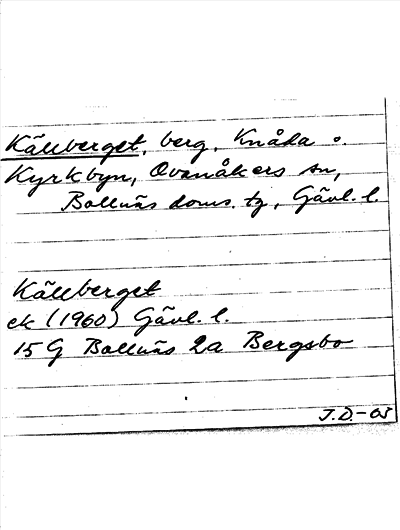 Källberget, berg, Knåda o.
Kyrkbyn, Ovanåkers sn,
Bollnäs doms. tg, Gävl. l.
Källberget
ek (1960) Gävl. l.
15 G Bollnäs 2a Bergsbo
J.D.-05